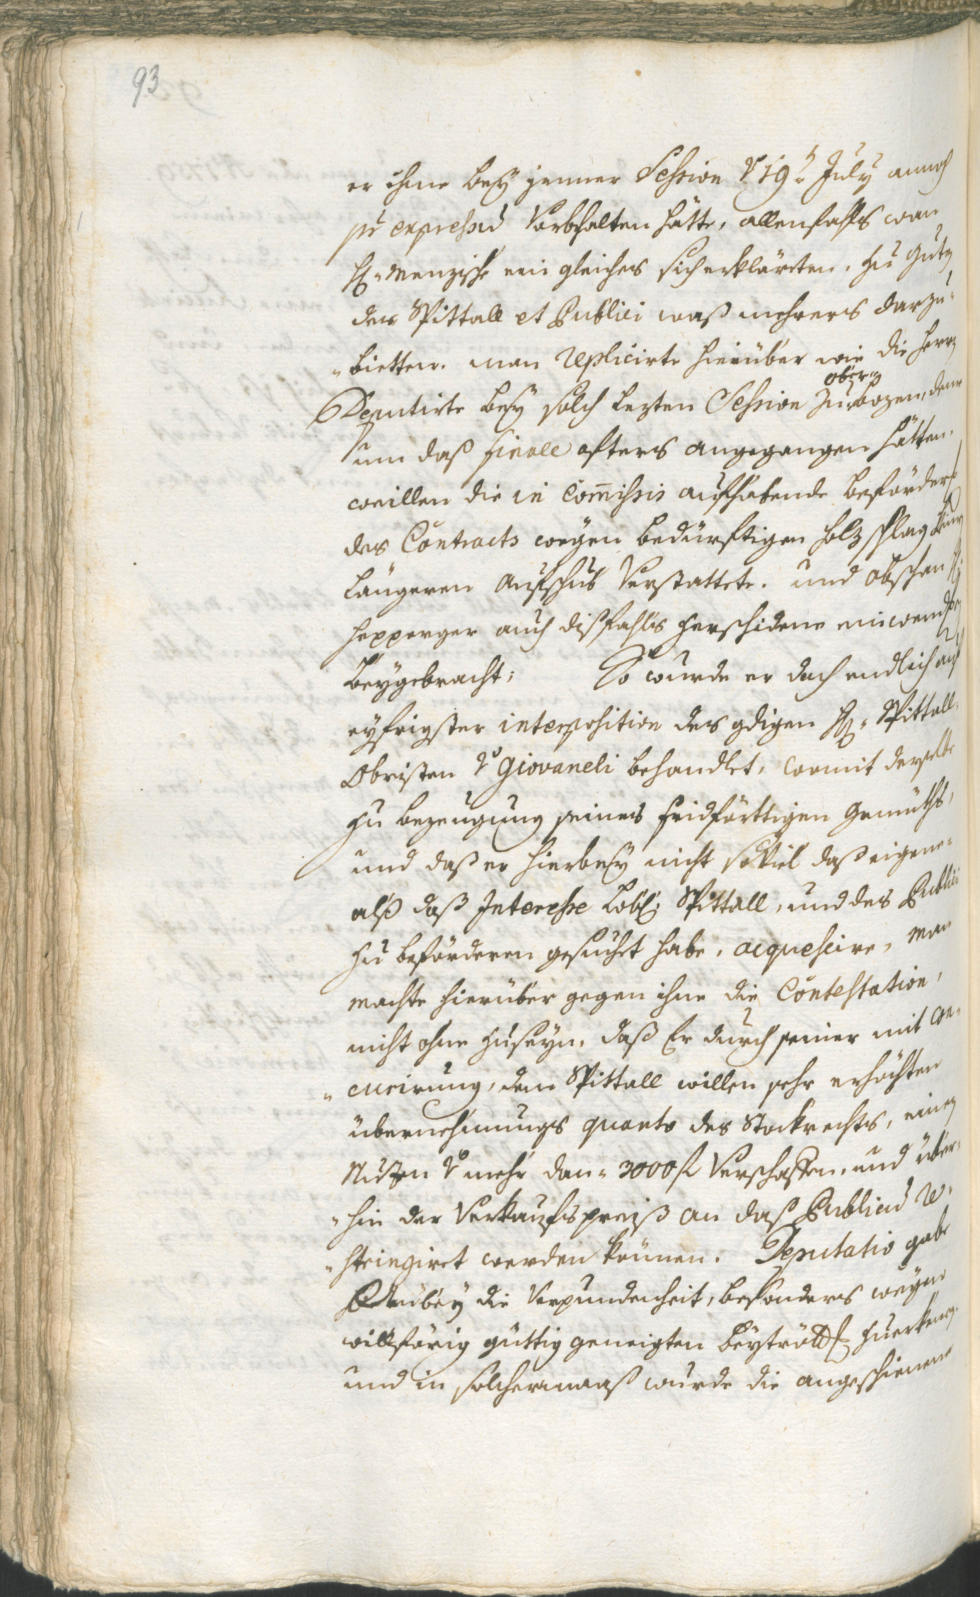 93
er ihme beÿ jenner Session v 19: Julÿ annoch
p expressu Vorbehalten hätte, allenfahls wan
H: Menzische ein gleiches sich erklärten, zu guten
des Spittall et Publici waß mehrers darzu¬
"bietten. man replicirte hierüber wie die herrn
Deputirte beÿ solch lezten Session obern Zu bozen, denn
umb daß finale öfters angegangen hätten.
weillen die in Commissis aufhabende beförderung
des Contracts wegen bedürftigen holz schlag keinen
längeren aufschub verstattete. und obschon H:
hepperger auch dißfahls Verschidene einwendung
beÿgebracht; So wurde er doch endlich auf
eÿfrigster interposition des gdigen H: H: Spittall
Obristen v Giovaneli behandlet, womit derselbe
zu bezeugung seines fridförttigen Gemüths,
und daß er hierbeÿ nicht soviel daß eigene¬
alß daß Interesse Lobl: Spittall, und des Publici
zu beförderen gesucht habe, acquescire, man
machte hierüber gegen ihne die Contestation,
nicht ohne zu seÿn, daß Er durch seiner mit con¬
"curirung, dem Spittall willen sehr erhöchten
übernehmungs quanto des Stockrechts, einen
Nutzen v mehr dan 3000 f verschaffen, und über¬
"hin der Verkaufspreiß an daß Publicum re¬
"stringiret werden können. Deputatio gabe
Anbeÿ die Verbundenheit, besonders wegen
willförig güttig geneigten beÿtritt zuerkennen.
und in solchermaaß wurde die angeschienene